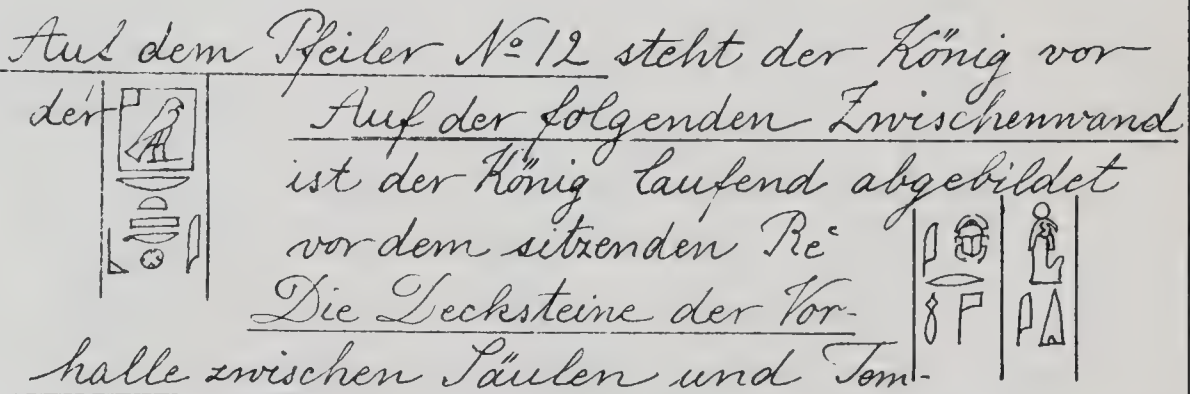 Auf dem Pfeiler № 12 steht der König vor
der
Auf der folgenden Zwischenwand
ist der König laufend abgebildet
vor dem sitzenden Reʿ
Die Decksteine der Vor-
halle zwischen Säulen und Tem-